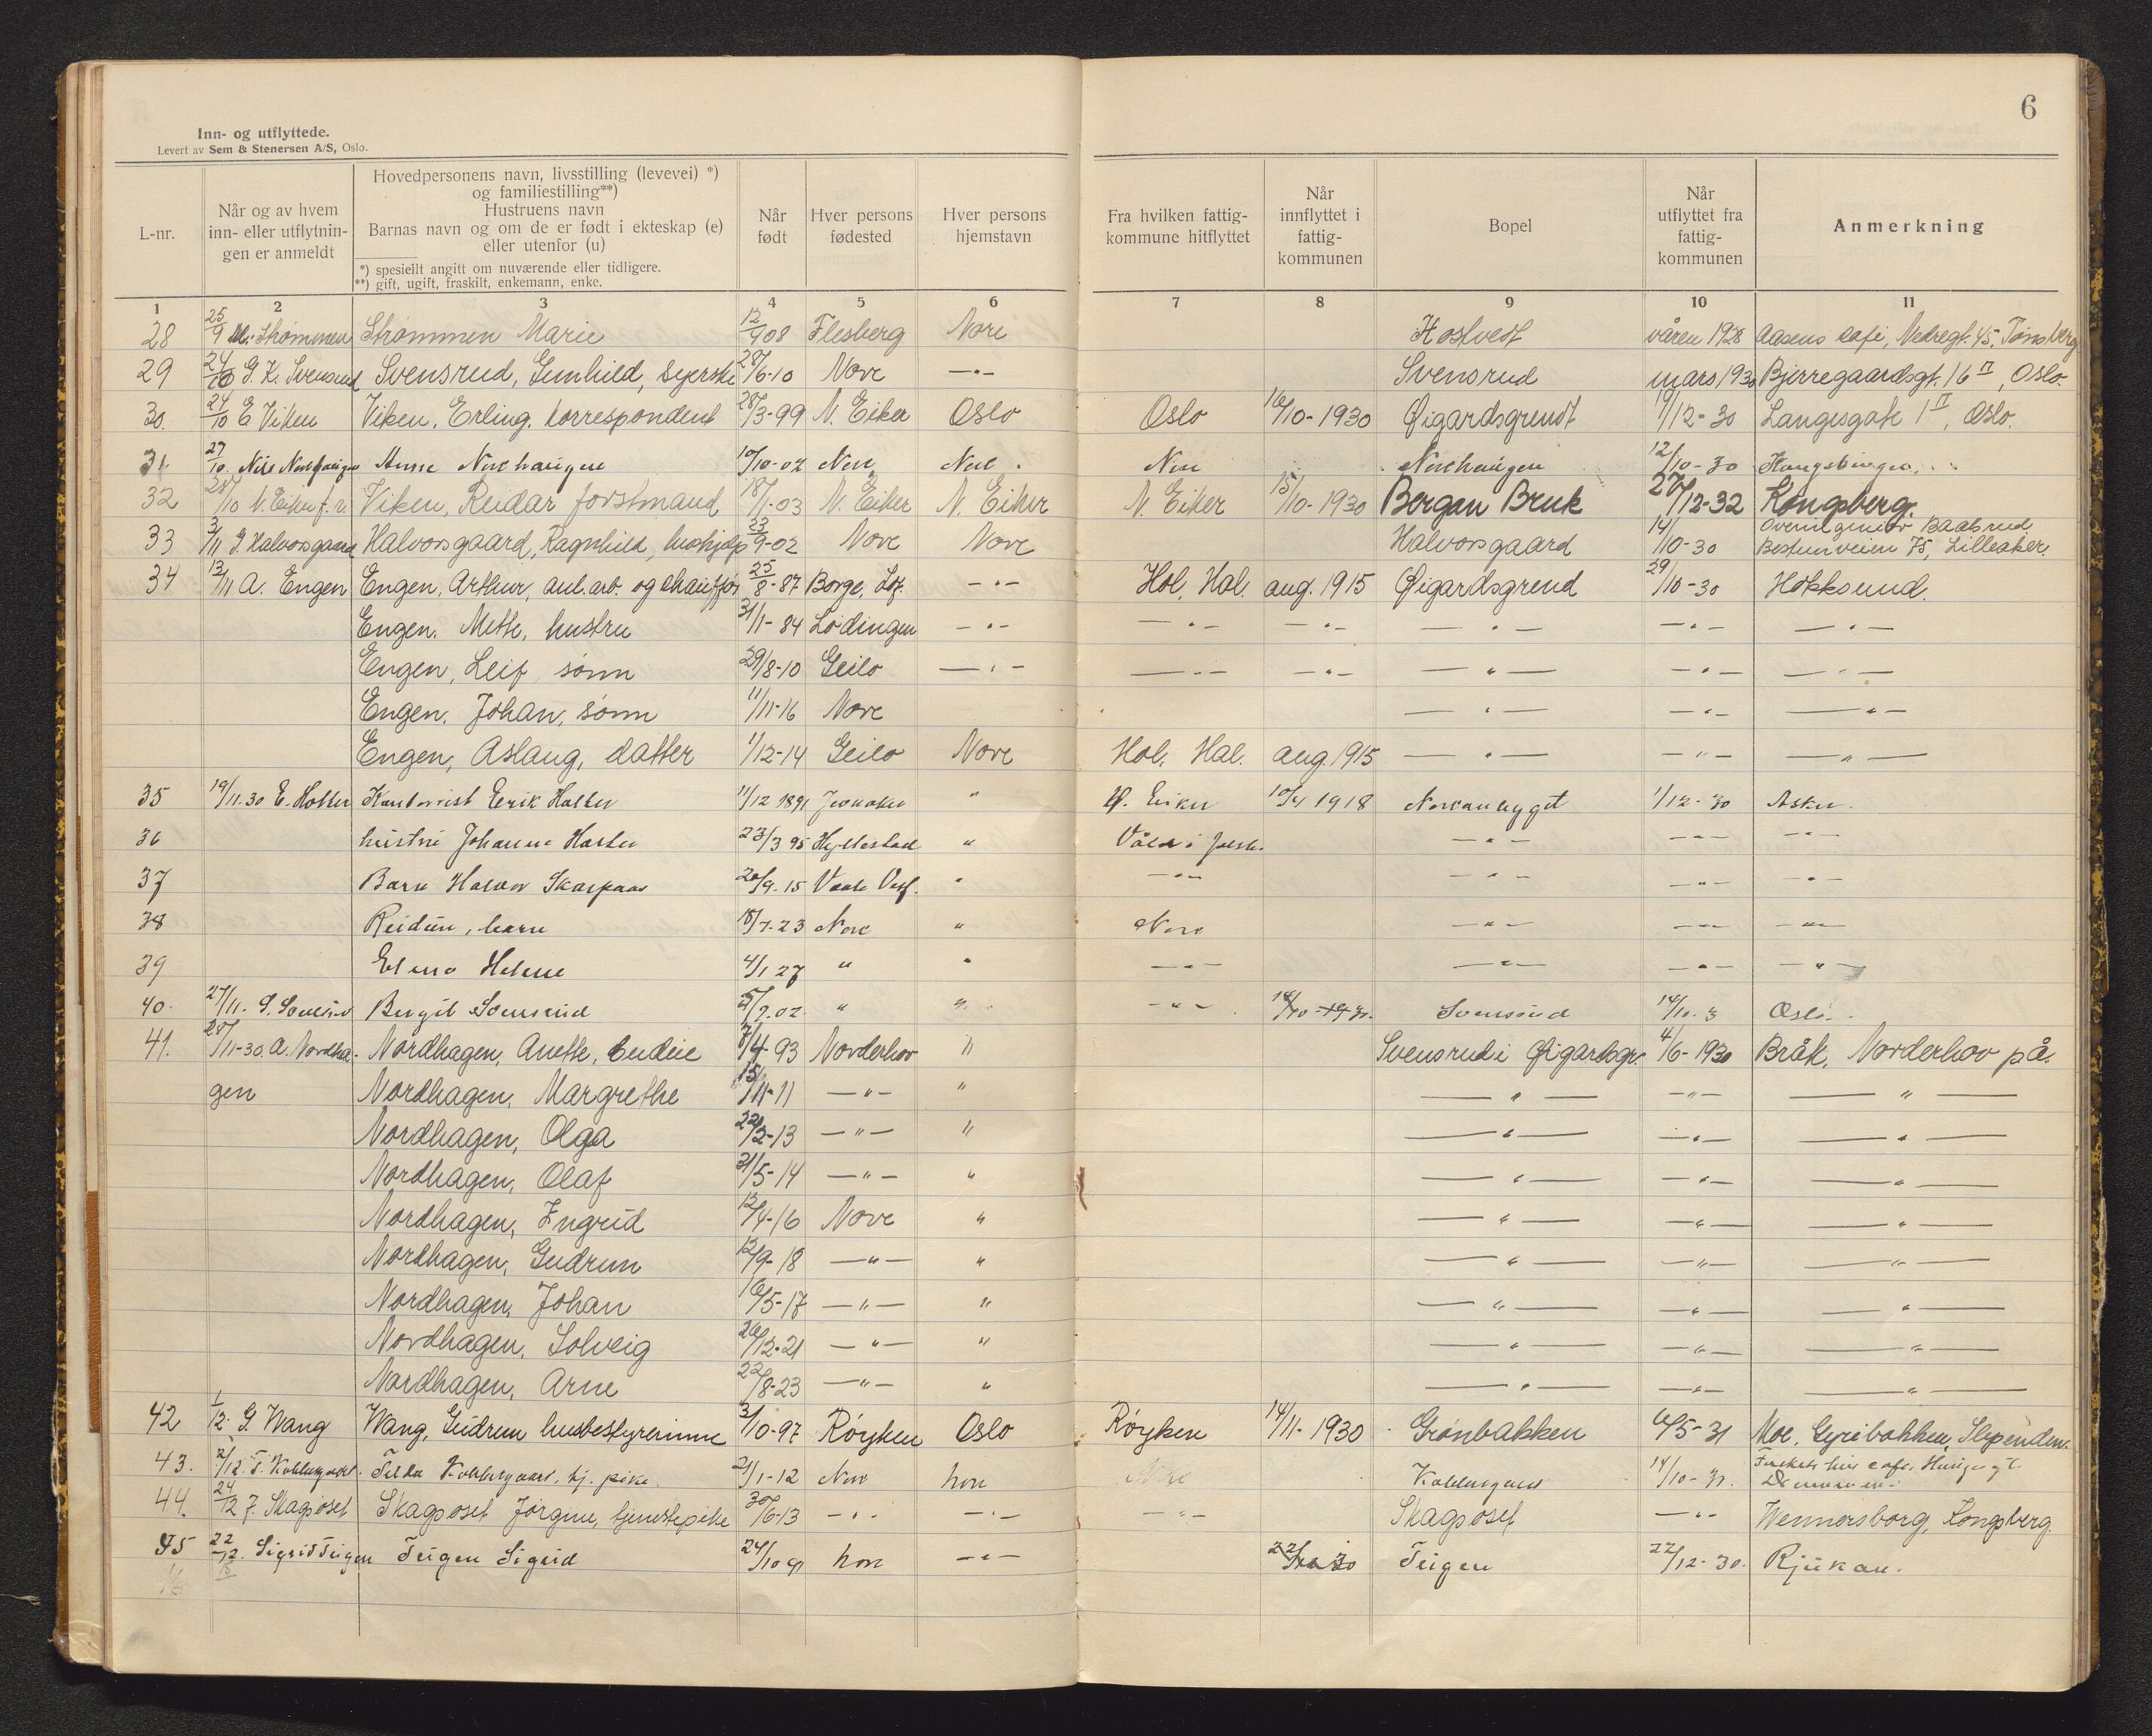 6
Inn- og utflyttede.
Levert av Sem & Stenersen A/S, Oslo.
L-nr. | Når og av hvem inn- eller utflytnin-gen er anmeldt | Hovedpersonens navn, livsstilling (levevei) *) og familiestilling**) Hustruens navn Barnas navn og om de er født i ekteskap (e) eller utenfor (u) *) spesiellt angitt om nuværende eller tidligere. **) gift, ugift, fraskilt, enkemann, enke. | Når født | Hver persons fødested | Hver persons hjemstavn | Fra hvilken fattig-kommune hitflyttet | Når innflyttet i fattig-kommunen | Bopel | Når utflyttet fra fattig-kommunen | Anmerkning
1 2 3 4 5 6 7 8 9 10 11
28 25/9 M. Strømmen Strømmen Marie 12/9 08 Flesberg Nore Hostvedt våren 1928 Aasens Café, Nedregt. 45, Tønsberg
29 24/10 G. K. Svensrud Svensrud, Gunhild, syerske 28/6-10 Nore -"- Svensrud mars 1930 Bjerregaardsgt. 16 II, Oslo.
30. 24/10 E Viken Viken, Erling. korrespondent 28/3-99 N. Eiker Oslo Oslo 16/10-1930 Øigardsgrendt 19/12-30 Langesgate 1 II, Oslo.
31. 27/10. Nils Norehaugen Anne Norehaugen 10/10-02 Nore Nore. Nore Norehaugen 12/10-30 Kongsvinger
32 28/10 N. Eiker f.v. Viken, Reidar forstmand 18/1-03 N. Eiker N. Eiker N. Eiker 15/10-1930 Borgan Bruk 27/12-32 Kongsberg.
33 3/11 G. Halvorsgaard Halvorsgaard, Ragnhild, hushjelp 23/9-02 Nore Nore Halvorsgaard 14/10-30 Overingeniør Baalsrud Bestumveien 75, Lilleaker.
34 13/11 A. Engen Engen, Arthur, anl.arb. og chauffør 25/8-87 Borge, Lof. -"- Hol, Hal. aug. 1915 Øigardsgrend 29/10-30 Hokksund.
Engen, Mette, hustru 31/1-84 Lødingen -"- -"- -"- -"- -"- -"-
Engen, Leif sønn 29/8-10 Geilo -"- -"- -"- -"- -"- -"-
Engen, Johan, sønn 11/11-16 Nore -"- -"- -"-
Engen, Aslaug, datter 1/12-14 Geilo Nore Hol, Hal. aug. 1915 -"- -"- -"-
35 19/11-30 E. Holter Kontorist Erik Holter 11/12 1891 Jevnaker " Ø. Eiker 10/4 1918 Norean bygd 1/12-30 Asker.
36 hustru Johanne Holter 23/3 95 Hyllestad " -"- -"- -"-
37 Barn Halvor Skarpaas 20/9-15 Vaale Vestf. " -"- -"- -"- -"-
38 Reidun, barn 18/7-23 Nore " Nore -"- -"- -"-
39 Helene 4/1 27 " " -"- -"- -"- -"-
40. 27/11. Bergit Svensrud 5/7.02 " " -"- Svensrud 14/10.3 Oslo.
41. 28/11-30. A. Nordha- Nordhagen, Anette, budeie 7/4-93 Norderhov " Svensrud i Øigardsgr. 4/6-1930 Bråk, Norderhov på.
gen Nordhagen, Margrethe 15/11-11 -"- " -"- -"- -"-
Nordhagen, Olga 22/2-13 -"- " -"- -"- -"-
Nordhagen, Olaf 31/5-14 -"- " -"- -"- -"-
Nordhagen, Ingrid 12/4-16 Nore " -"- -"- -"-
Nordhagen, Gudrun 12/9-18 -"- " -"- -"- -"-
Nordhagen, Johan 16/5-17 -"- " -"- -"- -"-
Nordhagen, Solveig 26/12-21 -"- " -"- -"- -"-
Nordhagen, Arne 22/8-23 -"- " -"- -"- -"-
42 1/12. G. Wang Wang, Gudrun husbestyrerinne 3/10-97 Røyken Oslo Røyken 14/11-1930 Grønbakken 6/5-31 Moe, Gyribakken, Slependen.
43. 2/12. T. Tilda hj. pike 21/1-12 Nore Nore 14/10-30.
44. 24/12 J. Skagsoset Skagsoset Jørgine, tjenestepike 30/6-13 -"- -"- -"- Skagsoset -"- Wennersborg, Kongsberg.
45 22/12. Sigrid Teigen Teigen Sigrid 24/10 91 Nore -"- Teigen 22/12-30. Rjukan.